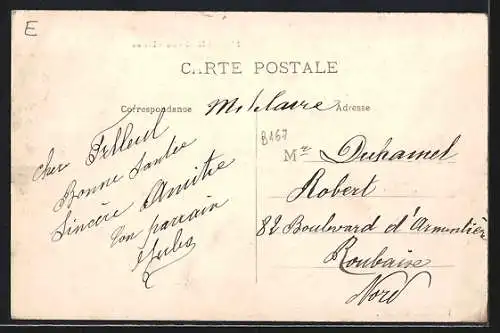 E
CARTE POSTALE
Correspondance
Adresse
B167
cher Filleul
Bonne Santée
Sincère Amitié
Ton parrain
Mr Duhamel
Robert
82 Boulevard d'Armentière
Roubaix
Nord